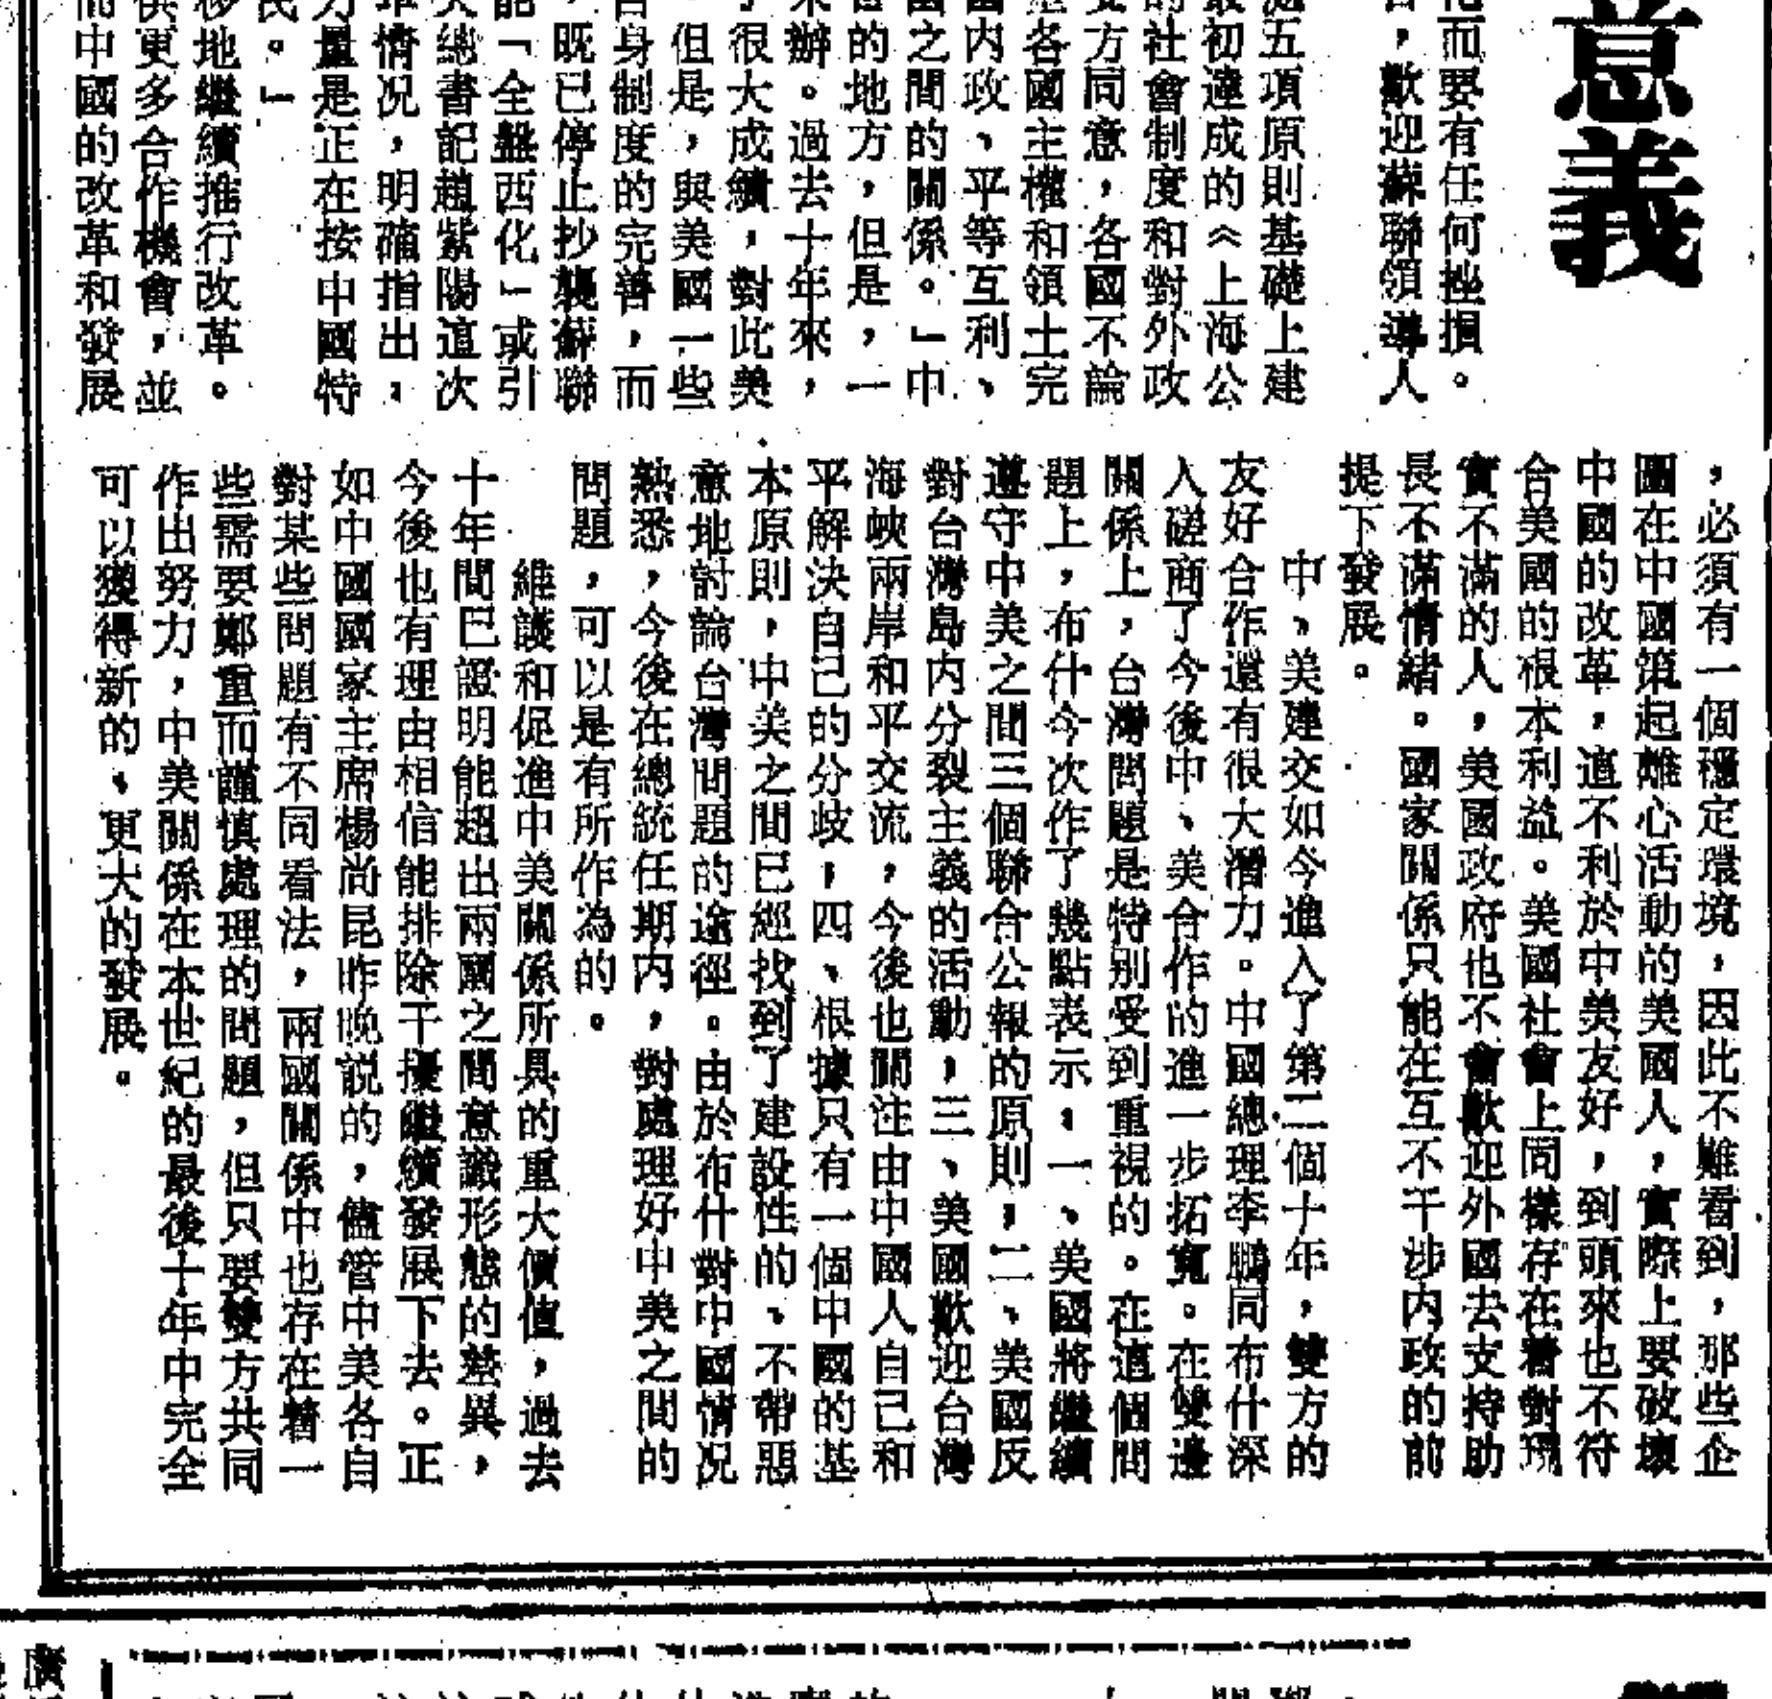 意義
化而要有任何挫損。
，歡迎蘇聯領導人
五項原則基礎上建
最初達成的《上海公
的社會制度和對外政
雙方同意，各國不論
重各國主權和領土完
內政、平等互利、
國之間的關係。」中
的地方，但是，一
來辦。過去十年來，
了很大成績，對此美
，但是，與美國一些
自身制度的完善，而
，既已停止抄襲蘇聯
能「全盤西化」或引
總書記趙紫陽這次
情況，明確指出，
力量是正在按中國特
民。」
移地繼續推行改革。
供更多合作機會，並
而中國的改革和發展
，必須有一個穩定環境，因此不難看到，那些企
圖在中國策起離心活動的美國人，實際上要破壞
中國的改革，這不利於中美友好，到頭來也不符
合美國的根本利益。美國社會上同樣存在着對現
實不滿的人，美國政府也不會歡迎外國去支持助
長不滿情緒。國家關係只能在互不干涉內政的前
提下發展。
中、美建交如今進入了第二個十年，雙方的
友好合作還有很大潛力。中國總理李鵬同布什深
入磋商了今後中、美合作的進一步拓寬。在雙邊
關係上，台灣問題是特別受到重視的。在這個問
題上，布什今次作了幾點表示，一、美國將繼續
遵守中美之間三個聯合公報的原則，二、美國反
對台灣島內分裂主義的活動，三、美國歡迎台灣
海峽兩岸和平交流，今後也關注由中國人自己和
平解決自己的分歧，四、根據只有一個中國的基
本原則，中美之間已經找到了建設性的、不帶惡
意地討論台灣問題的途徑。由於布什對中國情況
熟悉，今後在總統任期內，對處理好中美之間的
問題，可以是有所作為的。
維護和促進中美關係所具的重大價值，過去
十年間已證明能超出兩國之間意識形態的差異，
今後也有理由相信能排除干擾繼續發展下去。正
如中國國家主席楊尚昆昨晚說的，儘管中美各自
對某些問題有不同看法，兩國關係中也存在着一
些需要鄭重而謹慎處理的問題，但只要雙方共同
作出努力，中美關係在本世紀的最後十年中完全
可以獲得新的、更大的發展。
廣